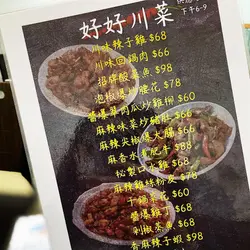 下午6-9
好好川菜
川味辣子雞 $68
川味回鍋肉 $66
招牌酸菜魚 $98
泡椒爆炒腰花 $78
醬爆草肉瓜炒雞柳 $60
麻辣味菜炒豬肚 $66
麻辣尖椒爆大腸 $66
麻香水煮肥牛 $88
秘製口水雞 $68
麻辣雞絲粉皮 $78
干鍋米花 $60
醬爆雞丁 $68
剁椒蒸魚 $68
香麻辣子蝦 $98